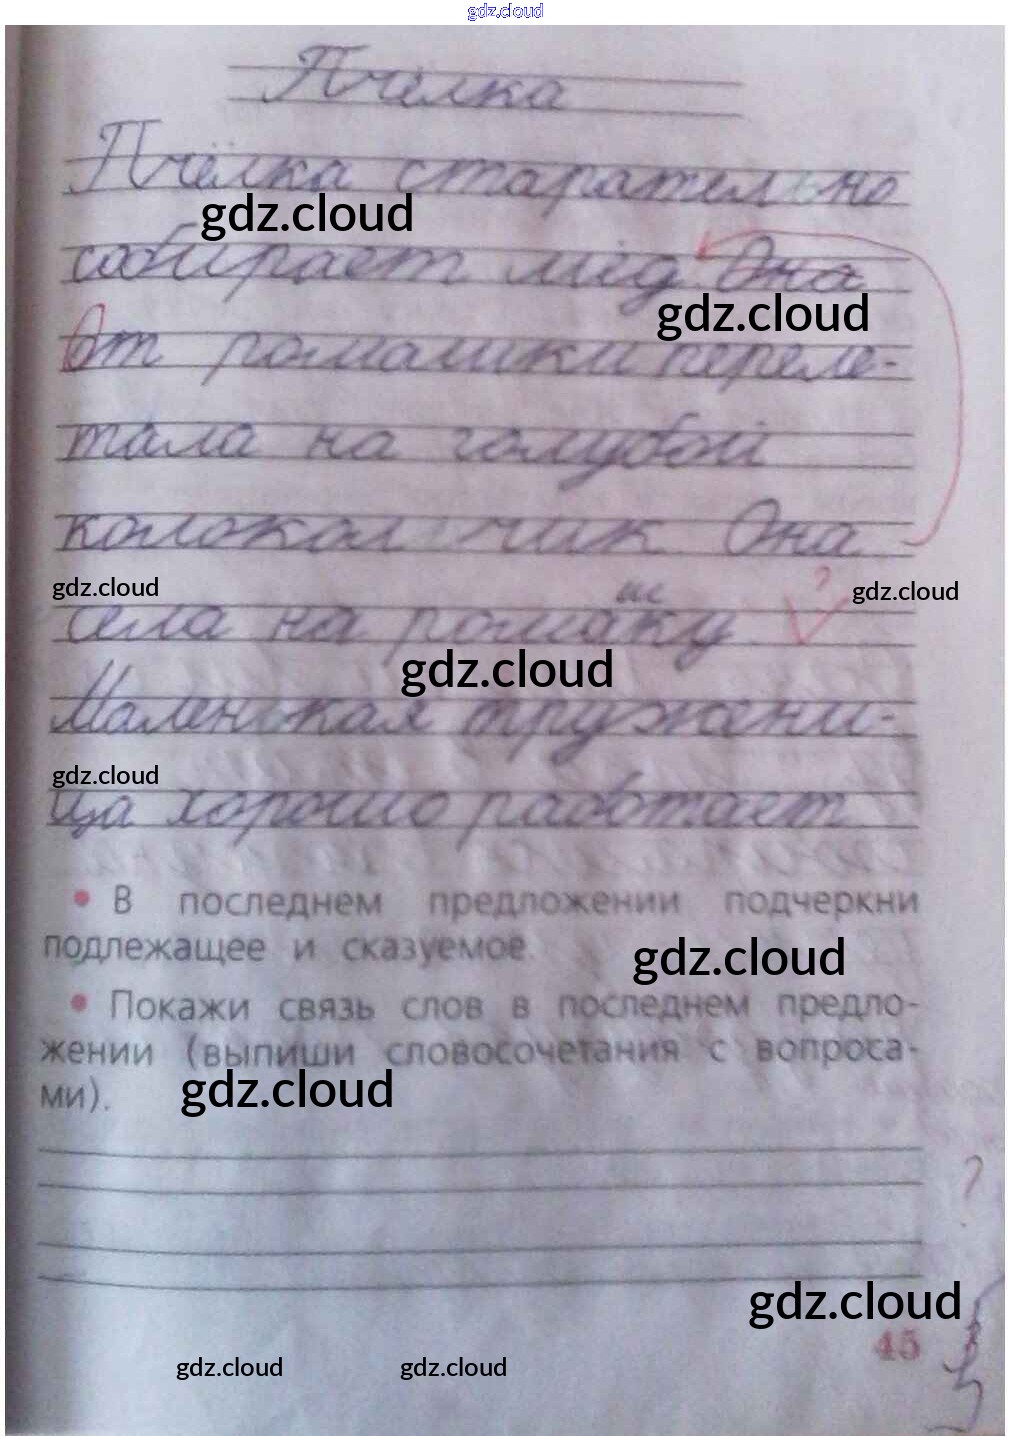 gdz.cloud
Пчёлка
Пчёлка старательно
gdz.cloud
собирает мёд. Она
gdz.cloud
От ромашки переле-
тала на голубой
колокольчик Она
gdz.cloud ? gdz.cloud
ш
села на ромаку
gdz.cloud
Маленькая тружени-
gdz.cloud
ца хорошо работает
• В последнем предложении подчеркни
подлежащее и сказуемое.
gdz.cloud
• Покажи связь слов в последнем предло-
жении (выпиши словосочетания с вопроса-
ми).
gdz.cloud
?
gdz.cloud
45
gdz.cloud gdz.cloud